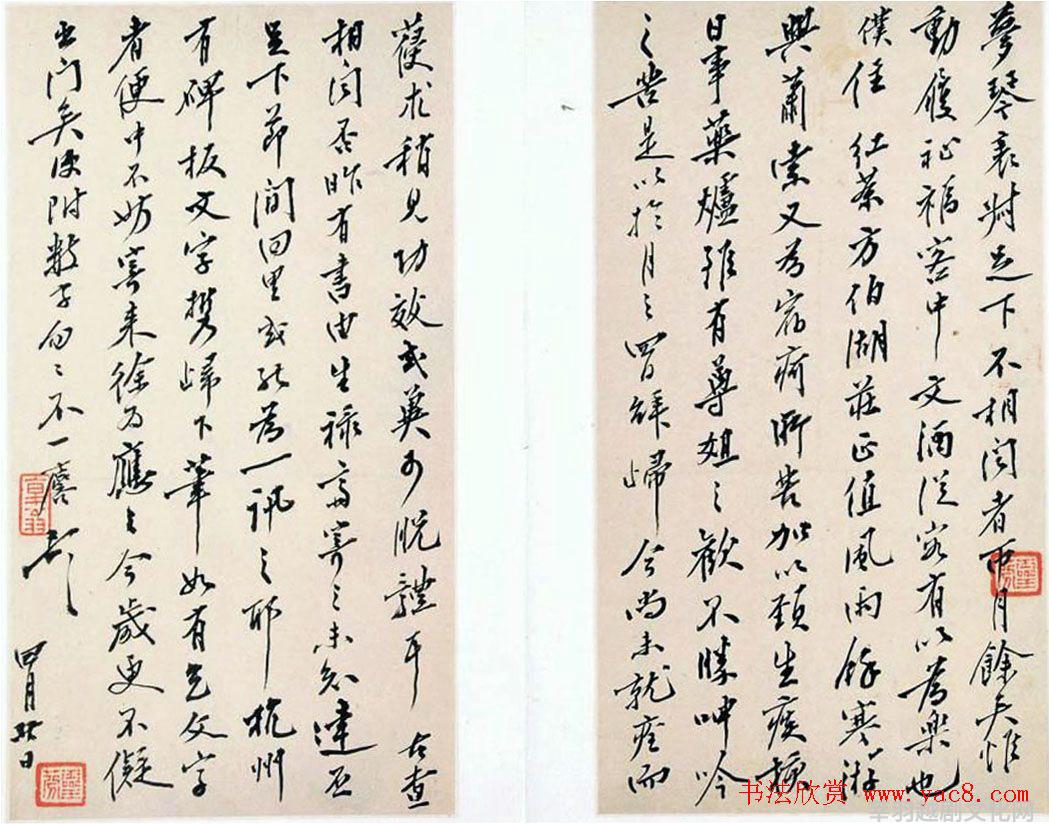 夢琴袁尉足下不相闻者两月餘矣惟
動履祉福客中文酒從容有以為樂也
僕住紅茶方伯湖莊正值風雨餘寒游
興蕭索又為宿疴所苦加以頸生疾擾
日事藥爐雖有尊俎之歡不勝呻吟
之苦是以於月之四日歸今尚未就痊而
求稍見功效或冀可脱體耳古查
相闻否昨有書由生禄斋寄之未知達否
足下节間回里或能為一訊之耶杭州
有碑板文字携歸下筆如有乞父字
者便中不妨寄来徐為應之今歲更不儗
出门矣便附数字匆匆不一
四月廿日
书法欣赏 www.yac8.com
华羽越剧文化网